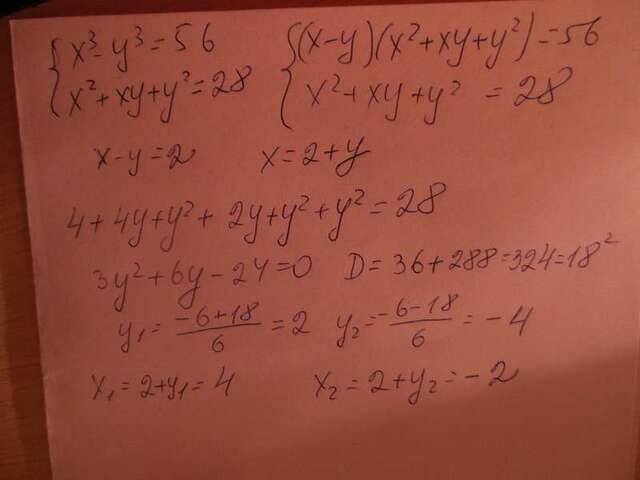 { x³-y³=56 { (x-y)(x²+xy+y²)=56
x²+xy+y²=28 x²+xy+y² = 28
x-y=2 x=2+y
4+4y+y²+ 2y+y²+y²=28
3y²+6y-24=0 D=36+288=324=18²
y₁= (-6+18)/6 = 2 y₂= (-6-18)/6 = -4
x₁=2+y₁=4 x₂=2+y₂=-2